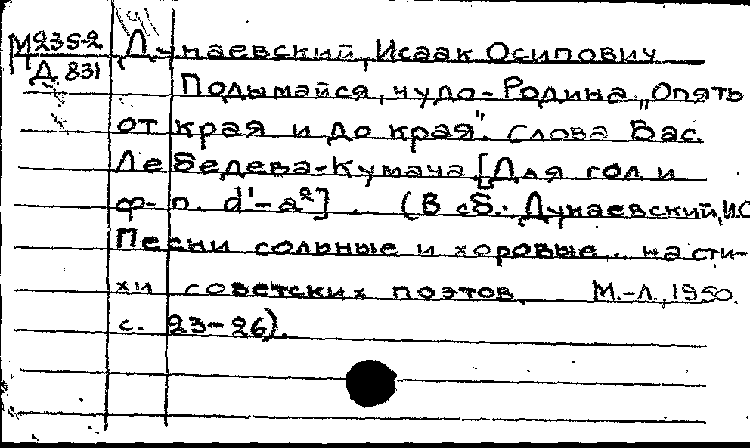 М235-2
Д 831
Дунаевский, Исаак Осипович
Подымайся, чудо-Родина „Опять
от края и до края". Слова Вас.
Лебедева-Кумача [Для гол. и
ф-п. d'-a²] . (В сб.: Дунаевский, И.О.
Песни сольные и хоровые.. на сти-
хи советских поэтов. М.-Л., 1950.
с. 23-26).